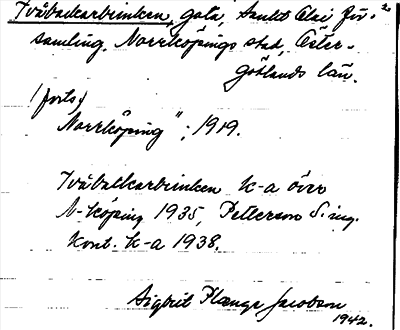 Tvåbatkarbrinken, gata, Sankt Olai för- 2
samling, Norrköpings stad, Öster-
götlands län.
(forts.)
Norrköping"; 1919.
Tvåbatkarbrinken k-a över
N-köping 1935, Petterson S. ing.
kont. k-a 1938.
Sigbrit Plænge Jacobson
1942.